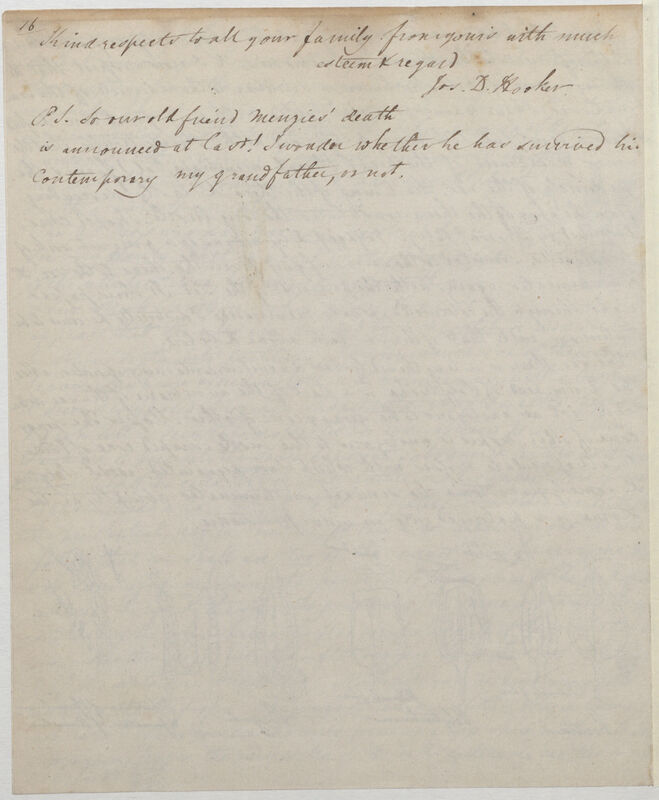 16
Kind respects to all your family from yours with much
esteem & regard
Jos. D. Hooker.
P.S. So our old friend Menzies' death
is announced at last! I wonder whether he has survived his
Contemporary my grandfather, or not.